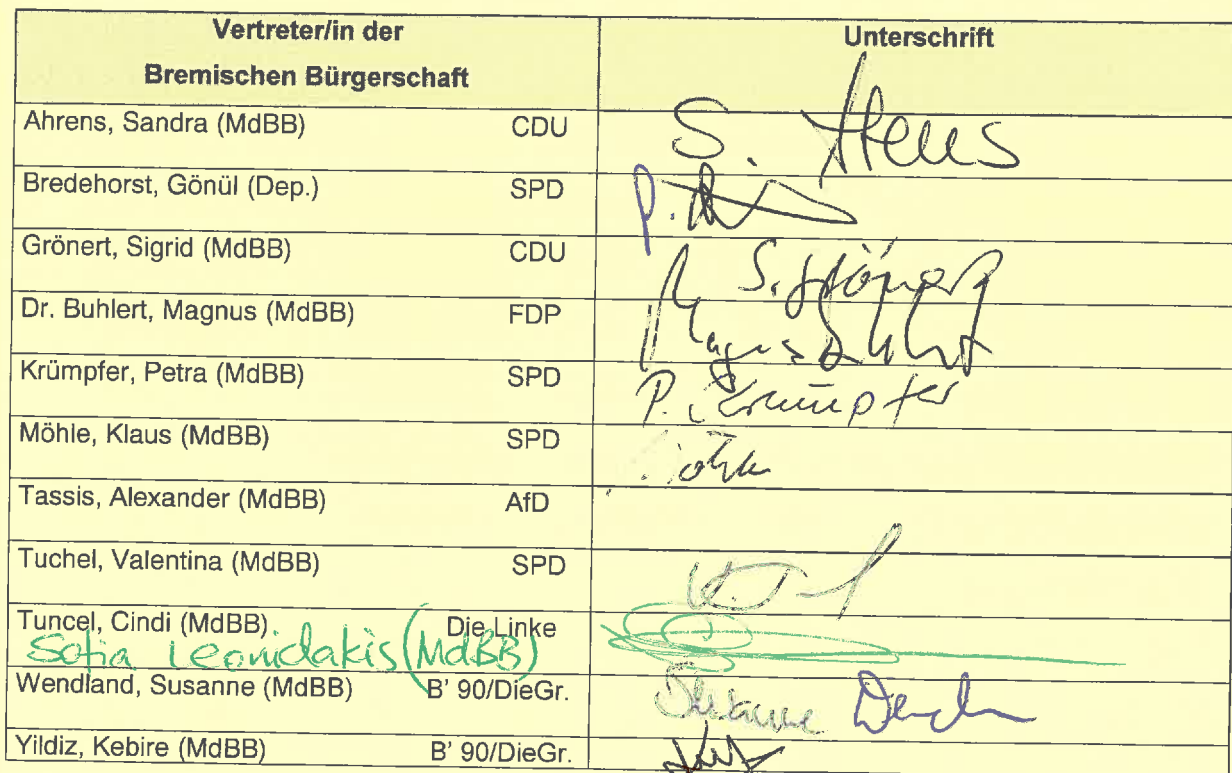 Vertreter/in der Unterschrift
Bremischen Bürgerschaft
Ahrens, Sandra (MdBB) CDU S. Ahrens
Bredehorst, Gönül (Dep.) SPD
Grönert, Sigrid (MdBB) CDU S. Grönert
Dr. Buhlert, Magnus (MdBB) FDP Magnus Buhlert
Krümpfer, Petra (MdBB) SPD P. Krümpfer
Möhle, Klaus (MdBB) SPD Möhle
Tassis, Alexander (MdBB) AfD
Tuchel, Valentina (MdBB) SPD
Tuncel, Cindi (MdBB) Die Linke
Sofia Leonidakis (MdBB)
Wendland, Susanne (MdBB) B' 90/DieGr.
Yildiz, Kebire (MdBB) B' 90/DieGr.